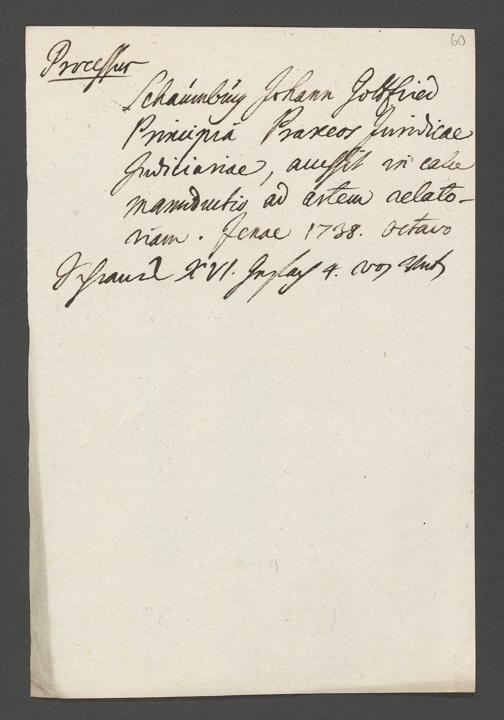 60
Processus
Schaumburg Johann Gottfried
Principia Praxeos Juridicae
Judiciariae, accessit in calce
manuductio ad artem relato-
riam. Jenae 1738. octavo
Schrank XVI. 4. von